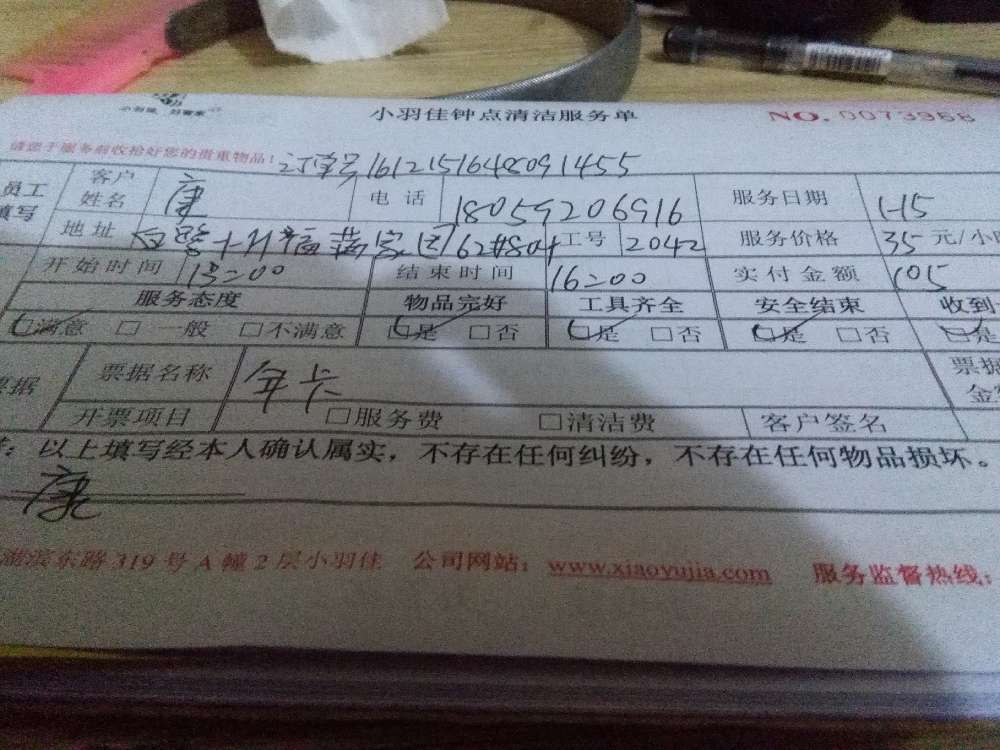 小羽佳钟点清洁服务单 NO. 0073958
请您于服务前收拾好您的贵重物品! 订单号161215164809 1455
员工填写 客户姓名 康 电话 18059206916 服务日期 1-15
地址 福 家园62#804 工号 2042 服务价格 35元/小
开始时间 13:00 结束时间 16:00 实付金额 105
服务态度 物品完好 工具齐全 安全结束 收到
☑满意 □一般 □不满意 ☑是 □否 ☑是 □否 ☑是 □否 ☑是
票据名称 年卡 票据
开票项目 □服务费 □清洁费 客户签名
以上填写经本人确认属实，不存在任何纠纷，不存在任何物品损坏。
康
滨东路319号A幢2层小羽佳 公司网站：www.xiaoyujia.com 服务监督热线：